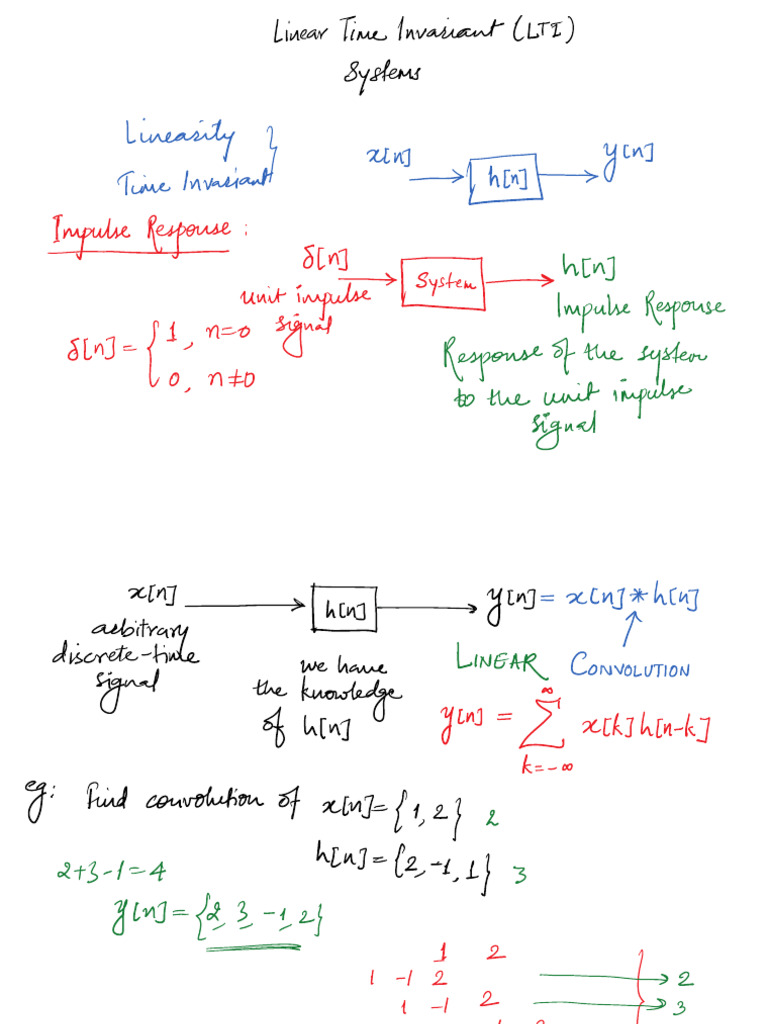 Linear Time Invariant (LTI)
Systems
Linearity
Time Invariant
x[n]
h[n]
y[n]
Impulse Response :
δ[n]
unit impulse
signal
System
h[n]
Impulse Response
Response of the system
to the unit impulse
signal
δ[n] = { 1, n=0
0, n≠0
x[n]
arbitrary
discrete-time
signal
h[n]
we have
the knowledge
of h[n]
y[n] = x[n] * h[n]
LINEAR CONVOLUTION
y[n] = ∞ Σ k=-∞ x[k] h[n-k]
eg: Find convolution of x[n] = {1, 2} 2
h[n] = {2, -1, 1} 3
2+3-1=4
y[n] = {2, 3, -1, 2}
1 2
1 -1 2 → 2
1 -1 2 → 3